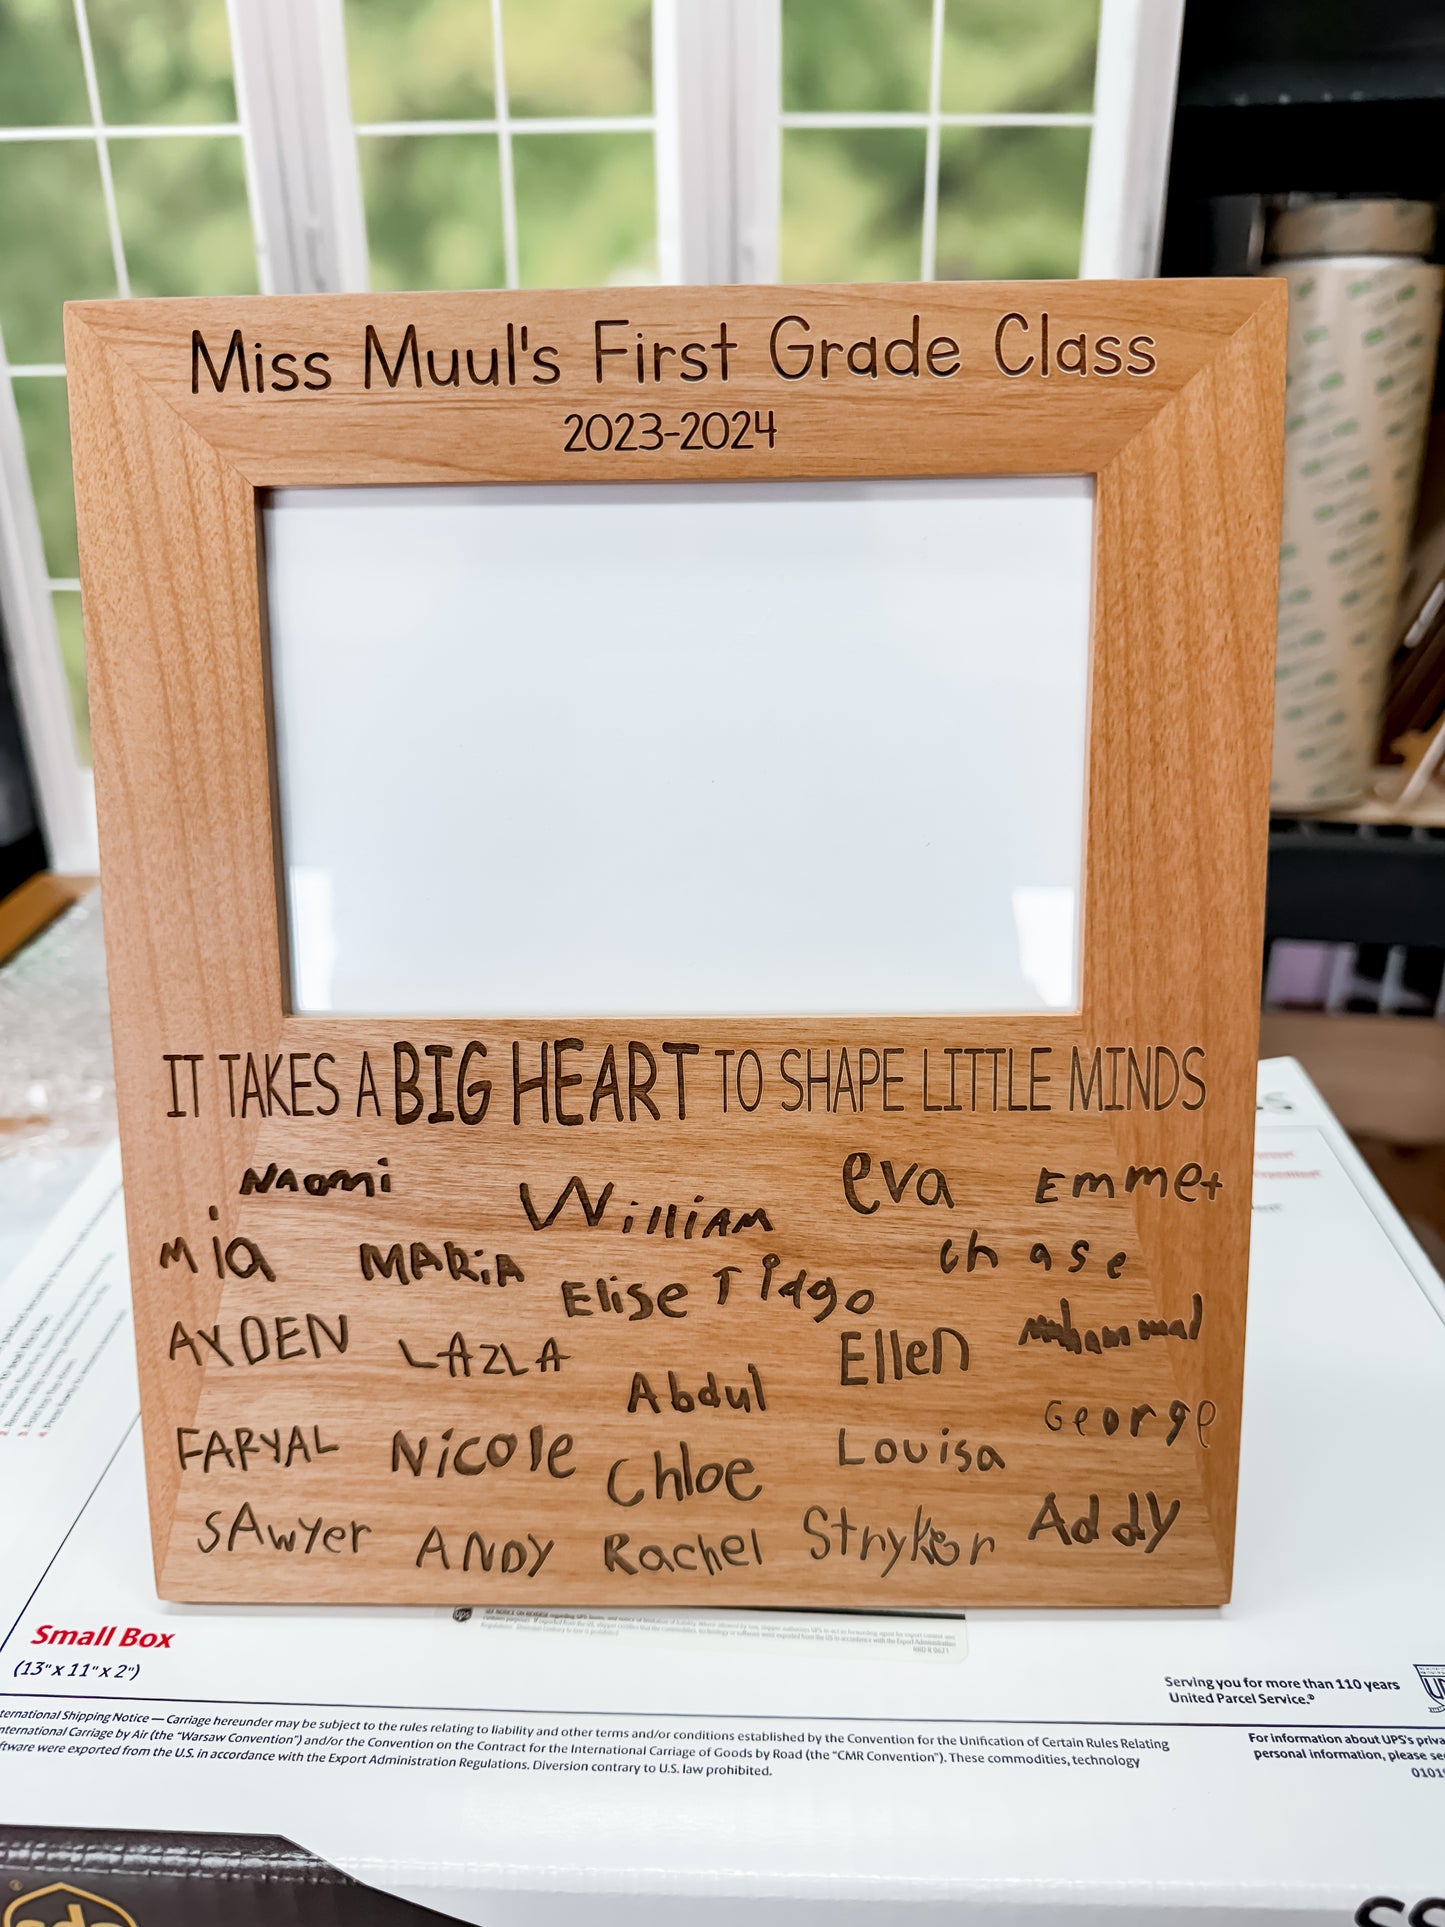 Miss Muul's First Grade Class
2023-2024
IT TAKES A BIG HEART TO SHAPE LITTLE MINDS
NAomi William eva Emmet
Mia MARiA Elise Tiago chase
AYDEN LAZLA Abdul Ellen Muhammad
FARYAL Nicole Chloe Louisa George
SAwyer ANDY Rachel Stryker Addy
Small Box
(13" x 11" x 2")
Serving you for more than 110 years
United Parcel Service.®
International Shipping Notice — Carriage hereunder may be subject to the rules relating to liability and other terms and/or conditions established by the Convention for the Unification of Certain Rules Relating
International Carriage by Air (the "Warsaw Convention") and/or the Convention on the Contract for the International Carriage of Goods by Road (the "CMR Convention"). These commodities, technology
software were exported from the U.S. in accordance with the Export Administration Regulations. Diversion contrary to U.S. law prohibited.
For information about UPS's
personal information, please
ups